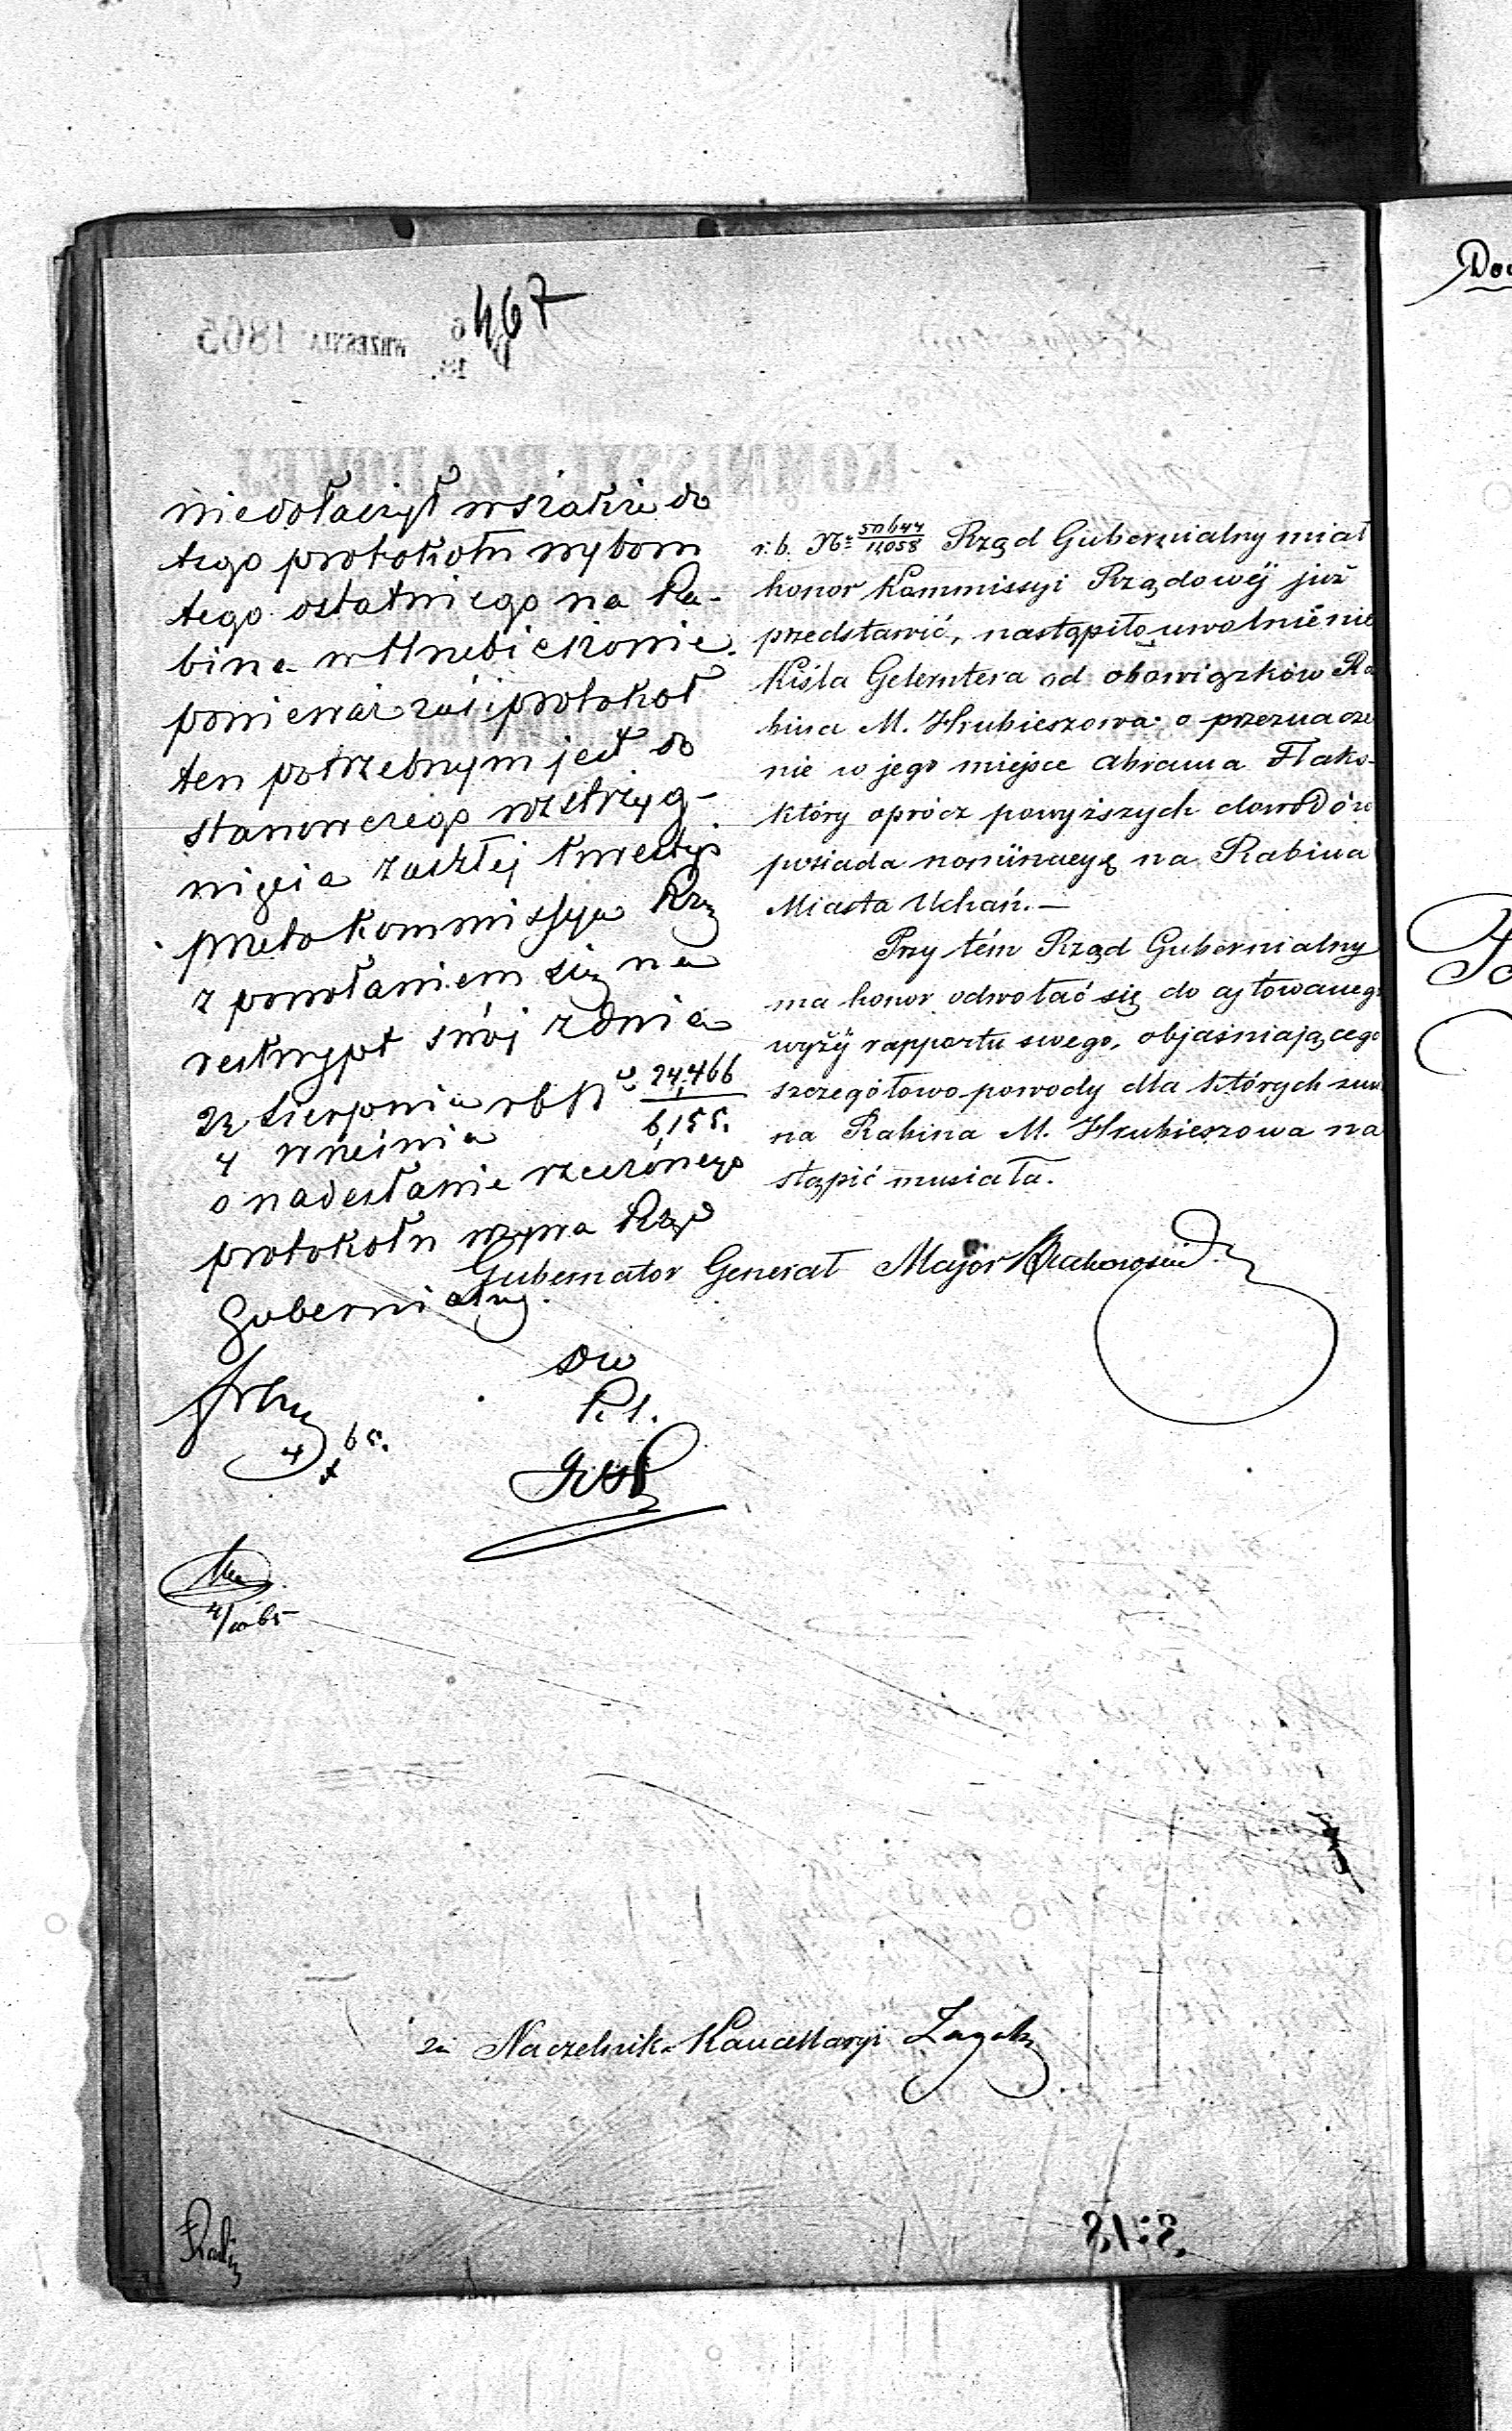 467
niedołączył wszakże do
tego protokołu wyboru
tego ostatniego na Ra-
bina w Hrubieszowie.
ponieważ zaś protokoł
ten potrzebnym jest do
stanowczego rozstrzyg-
nięcia zaszłej kwestyi
przeto Kommissya Rzą
z powołaniem się na
reskrypt swój z dnia
23 Sierpnia rb N 24,466
4 września 6,155.
o nadesłanie rzeczonego
protokołu wzywa Rząd
Gubernialny.
4 65.
4/65
r.b. No 11058 Rząd Gubernialny miał
honor Kommissyi Rządowéj już
przedstawić, nastąpiło uwolnienie
Kiśla Gelerntera od obowiązków Ra
bina M. Hrubieszowa a przeznacze
nie w jego miejsce abrama Flaks
który oprócz powyższych dowodów
posiada nominacyę na Rabina
Miasta Uchań. —
Przy tém Rząd Gubernialny
ma honor odwołać się do cytowanego
wyżéj rapportu swego, objaśniającego
szczegółowo powody dla których
na Rabina M. Hrubieszowa na
stąpić musiała.
Gubernator Generał Major
za Naczelnika Kancellaryi